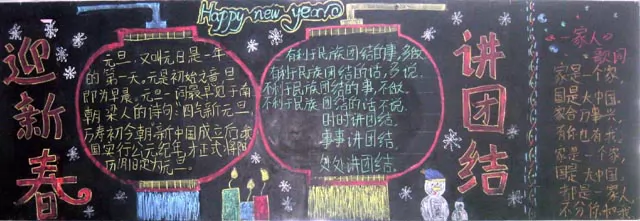 Happy new year
迎新春
元旦，又叫元日是一年
的第一天。元是初始之音，旦
即为早晨。元旦一词最早见于南
朝梁人的诗句：“四气新元旦，
万寿初今朝。”新中国成立后我
国实行公元纪年，才正式将阳
历1月1日定为元旦。
有利于民族团结的事，多做
有利于民族团结的话，多说，
不利于民族团结的事，不做，
不利于民族团结的话不说，
时时讲团结，
事事讲团结，
处处讲团结。
讲团结
一家人
歌词
家是一个家，
国是大中国，
家合万事兴，
有你也有我，
家是一个家，
国是大中国
都是一家人
不分你和我